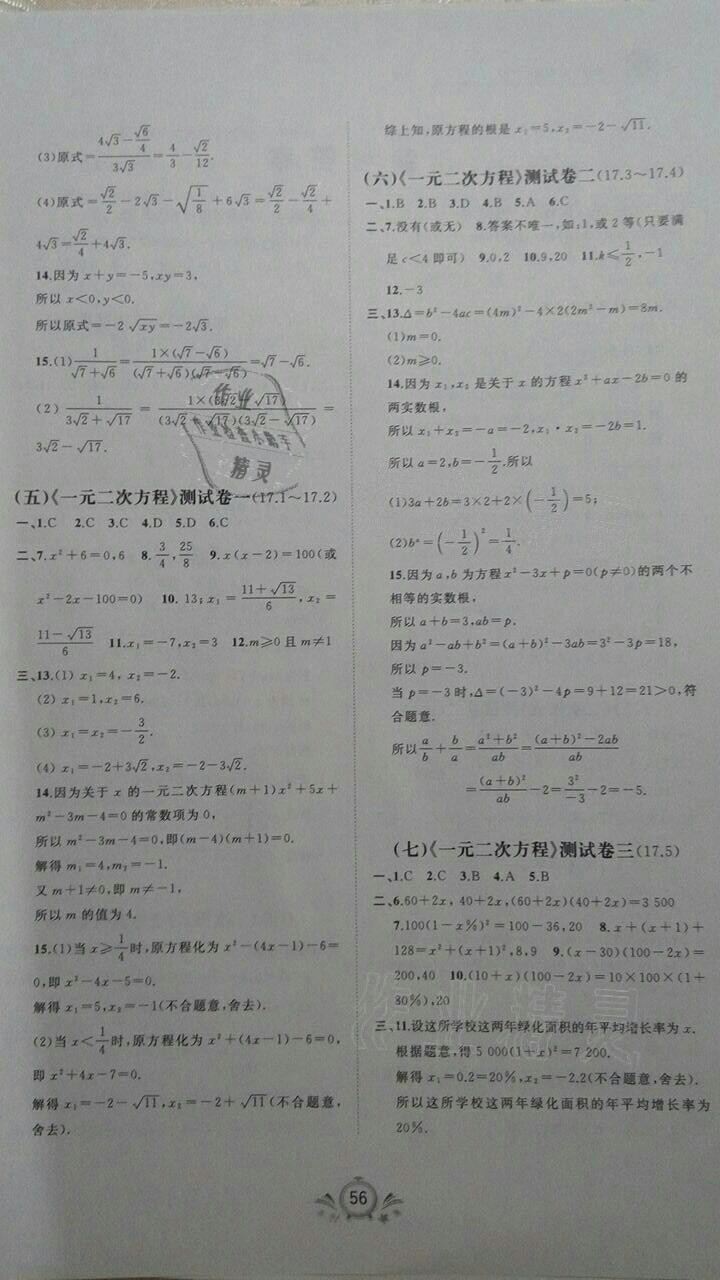 (3)原式=(4√3-√6/4)/(3√3)=4/3-√2/12.
(4)原式=√2/2-2√3-√(1/8)+6√3=√2/2-√2/4+
4√3=√2/4+4√3.
14.因为x+y=-5,xy=3,
所以x<0,y<0.
所以原式=-2√xy=-2√3.
15.(1)1/(√7+√6)=1×(√7-√6)/((√7+√6)(√7-√6))=√7-√6.
(2)1/(3√2+√17)=1×(3√2-√17)/((3√2+√17)(3√2-√17))=
3√2-√17.
(五)《一元二次方程》测试卷一(17.1~17.2)
一、1.C 2.C 3.C 4.D 5.D 6.C
二、7.x²+6=0,6 8.3/4,25/8 9.x(x-2)=100(或
x²-2x-100=0) 10.13;x₁=(11+√13)/6,x₂=
(11-√13)/6 11.x₁=-7,x₂=3 12.m≥0且m≠1
三、13.(1)x₁=4,x₂=-2.
(2)x₁=1,x₂=6.
(3)x₁=x₂=-3/2.
(4)x₁=-2+3√2,x₂=-2-3√2.
14.因为关于x的一元二次方程(m+1)x²+5x+
m²-3m-4=0的常数项为0,
所以m²-3m-4=0,即(m-4)(m+1)=0.
解得m₁=4,m₂=-1.
又m+1≠0,即m≠-1,
所以m的值为4.
15.(1)当x≥1/4时,原方程化为x²-(4x-1)-6=
0,即x²-4x-5=0.
解得x₁=5,x₂=-1(不合题意,舍去).
(2)当x<1/4时,原方程化为x²+(4x-1)-6=0,
即x²+4x-7=0.
解得x₁=-2-√11,x₂=-2+√11(不合题意,
舍去).
综上知,原方程的根是x₁=5,x₂=-2-√11.
(六)《一元二次方程》测试卷二(17.3~17.4)
一、1.B 2.B 3.D 4.B 5.A 6.C
二、7.没有(或无) 8.答案不唯一,如:1,或2等(只要满
足c<4即可) 9.0,2 10.9,20 11.k≤1/2,-1
12.-3
三、13.Δ=b²-4ac=(4m)²-4×2(2m²-m)=8m.
(1)m=0.
(2)m≥0.
14.因为x₁,x₂是关于x的方程x²+ax-2b=0的
两实数根,
所以x₁+x₂=-a=-2,x₁·x₂=-2b=1.
所以a=2,b=-1/2.所以
(1)3a+2b=3×2+2×(-1/2)=5;
(2)bᵃ=(-1/2)²=1/4.
15.因为a,b为方程x²-3x+p=0(p≠0)的两个不
相等的实数根,
所以a+b=3,ab=p.
因为a²-ab+b²=(a+b)²-3ab=3²-3p=18,
所以p=-3.
当p=-3时,Δ=(-3)²-4p=9+12=21>0,符
合题意.
所以a/b+b/a=(a²+b²)/ab=((a+b)²-2ab)/ab
=(a+b)²/ab-2=3²/-3-2=-5.
(七)《一元二次方程》测试卷三(17.5)
一、1.C 2.C 3.B 4.A 5.B
二、6.60+2x,40+2x,(60+2x)(40+2x)=3 500
7.100(1-x%)²=100-36,20 8.x+(x+1)+
128=x²+(x+1)²,8,9 9.(x-30)(100-2x)=
200,40 10.(10+x)(100-2x)=10×100×(1+
80%),20
三、11.设这所学校这两年绿化面积的年平均增长率为x.
根据题意,得5 000(1+x)²=7 200.
解得x₁=0.2=20%,x₂=-2.2(不合题意,舍去).
所以这所学校这两年绿化面积的年平均增长率为
20%.
56